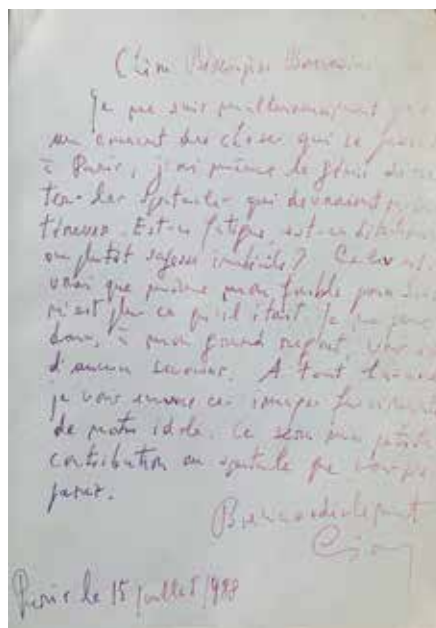 Chère
Je ne suis malheureusement pas
au courant des choses qui se passent
à Paris, j'ai même le génie d'évi-
ter les spectacles qui devraient m'in-
téresser. Est-ce fatigue, est-ce
ou plutôt sagesse ? Cela est
vrai que même mon faible pour
n'est plus ce qu'il était. Je ne puis
donc, à mon grand regret, vous être
d'aucun secours. A tout hasard
je vous envoie ces images
de notre idole. Ce sera ma petite
contribution au spectacle que vous pré-
parez.
Bien cordialement
Cioran
Paris le 15 juillet 1988